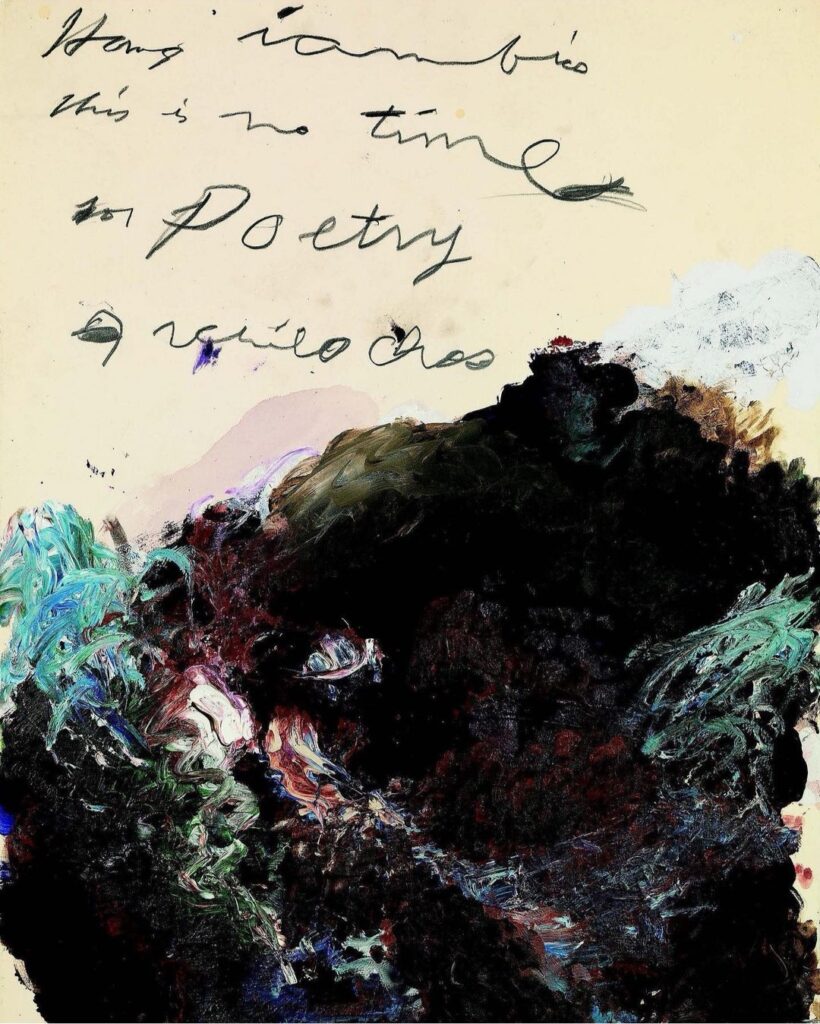 Hang iambics
this is no time
for Poetry
Archilochos